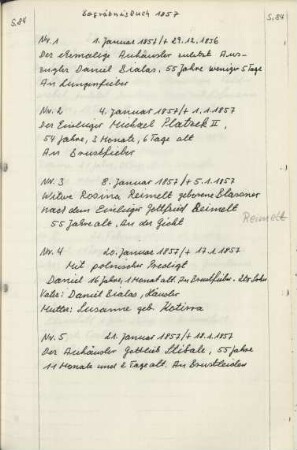 S.84 Begräbnisbuch 1857 S.84
Nr. 1 1. Januar 1857/+ 29.12.1856
Der ehemalige Auhäusler zuletzt Aus-
zügler Daniel Bialas, 55 Jahre weniger 5 Tage
An Lungenfieber
Nr. 2 4. Januar 1857/+ 1.1.1857
Der Einlieger Michael Platzek II,
54 Jahre, 3 Monate, 6 Tage alt
An Brustfieber
Nr. 3 8. Januar 1857/+ 5.1.1857
Witwe Rosina Reimelt geborene Classner
nach dem Einlieger Gottfried Reimelt
55 Jahre alt, An der Gicht
Reimelt
Nr. 4 20. Januar 1857/+ 17.1.1857
Mit polnischer Predigt
Daniel 16 Jahre, 1 Monat alt. An Brustfieber. 2ter Sohn
Vater: Daniel Bialas, Häusler
Mutter: Susanne geb. Kotirra
Nr. 5 21. Januar 1857/+ 18.1.1857
Der Auhäusler Gottlieb Stibale, 55 Jahre
11 Monate und 2 Tage alt. An Brustleiden